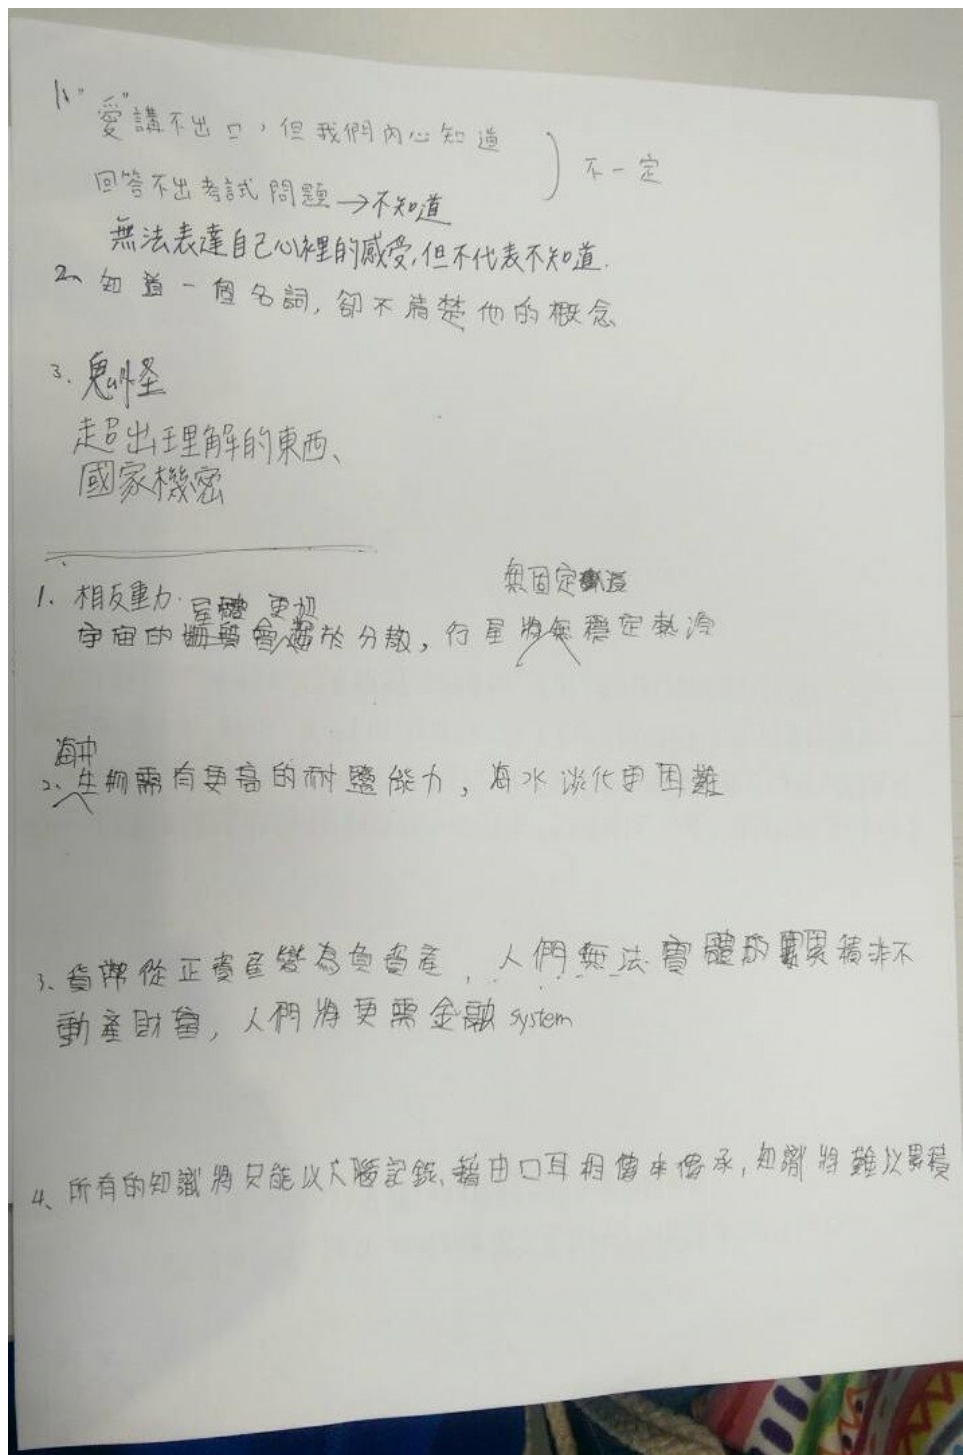 1、"愛"講不出口,但我們內心知道
回答不出考試問題→不知道
不一定
無法表達自己心裡的感受,但不代表不知道.
2、知道一個名詞,卻不清楚他的概念
3、鬼怪
超出理解的東西、
國家機密
1、相反重力.
星體 更趨
無固定
宇宙的 於分散,行星 穩定熱源
海中
2、生物需有更高的耐鹽能力,海水淡化更困難
3、貨幣從正資產變為負資產,人們無法實體的累積非不
動產財富,人們將更需金融system
4、所有的知識將只能以大腦記錄、藉由口耳相傳來傳承,知識將難以累積